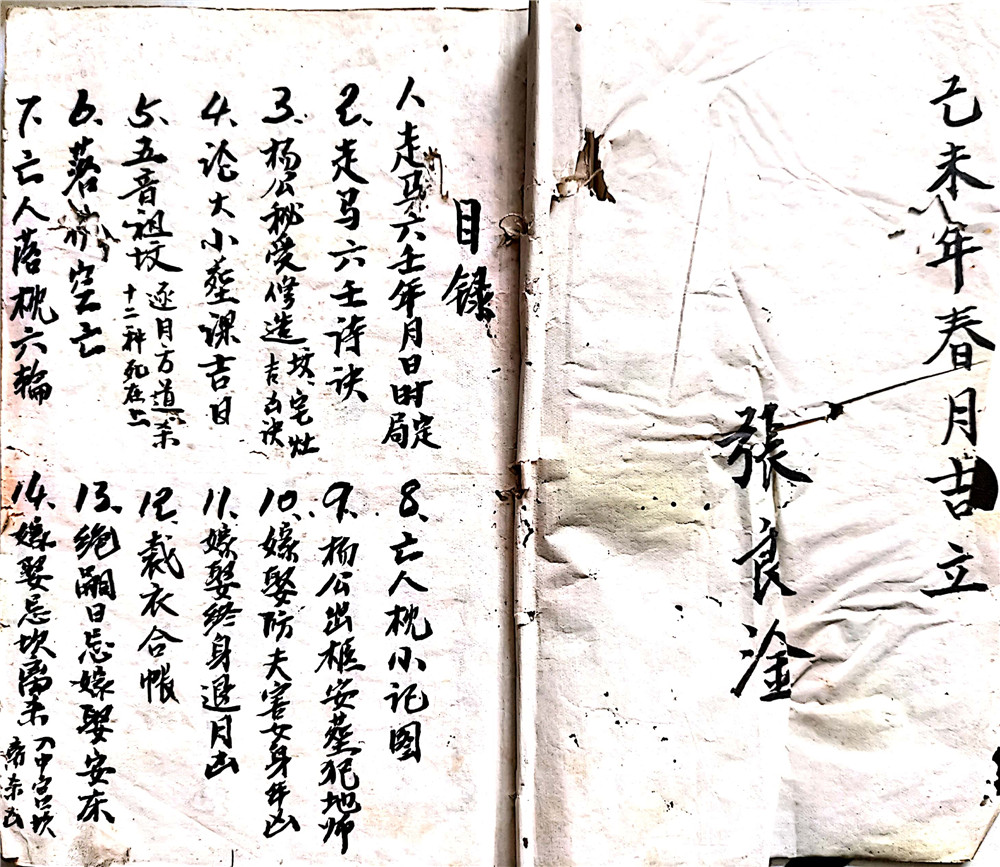 己未年春月吉立
張良淦
目録
1.走马六壬年月日时定局
2.走马六壬诗诀
3.杨公秘受修造坟、宅灶吉凶诀
4.论大小葬课吉日
5.五音祖坟逐月方道杀十二种死在上
6.落 空亡
7.亡人落枕六輪
8.亡人枕小记图
9.杨公出樵安葬犯地师
10.嫁娶防夫害女身年凶
11.嫁娶终身退月凶
12.裁衣合帳
13.绝嗣日忌嫁娶安床
14.嫁娶忌坎离 中宫坎离杀凶